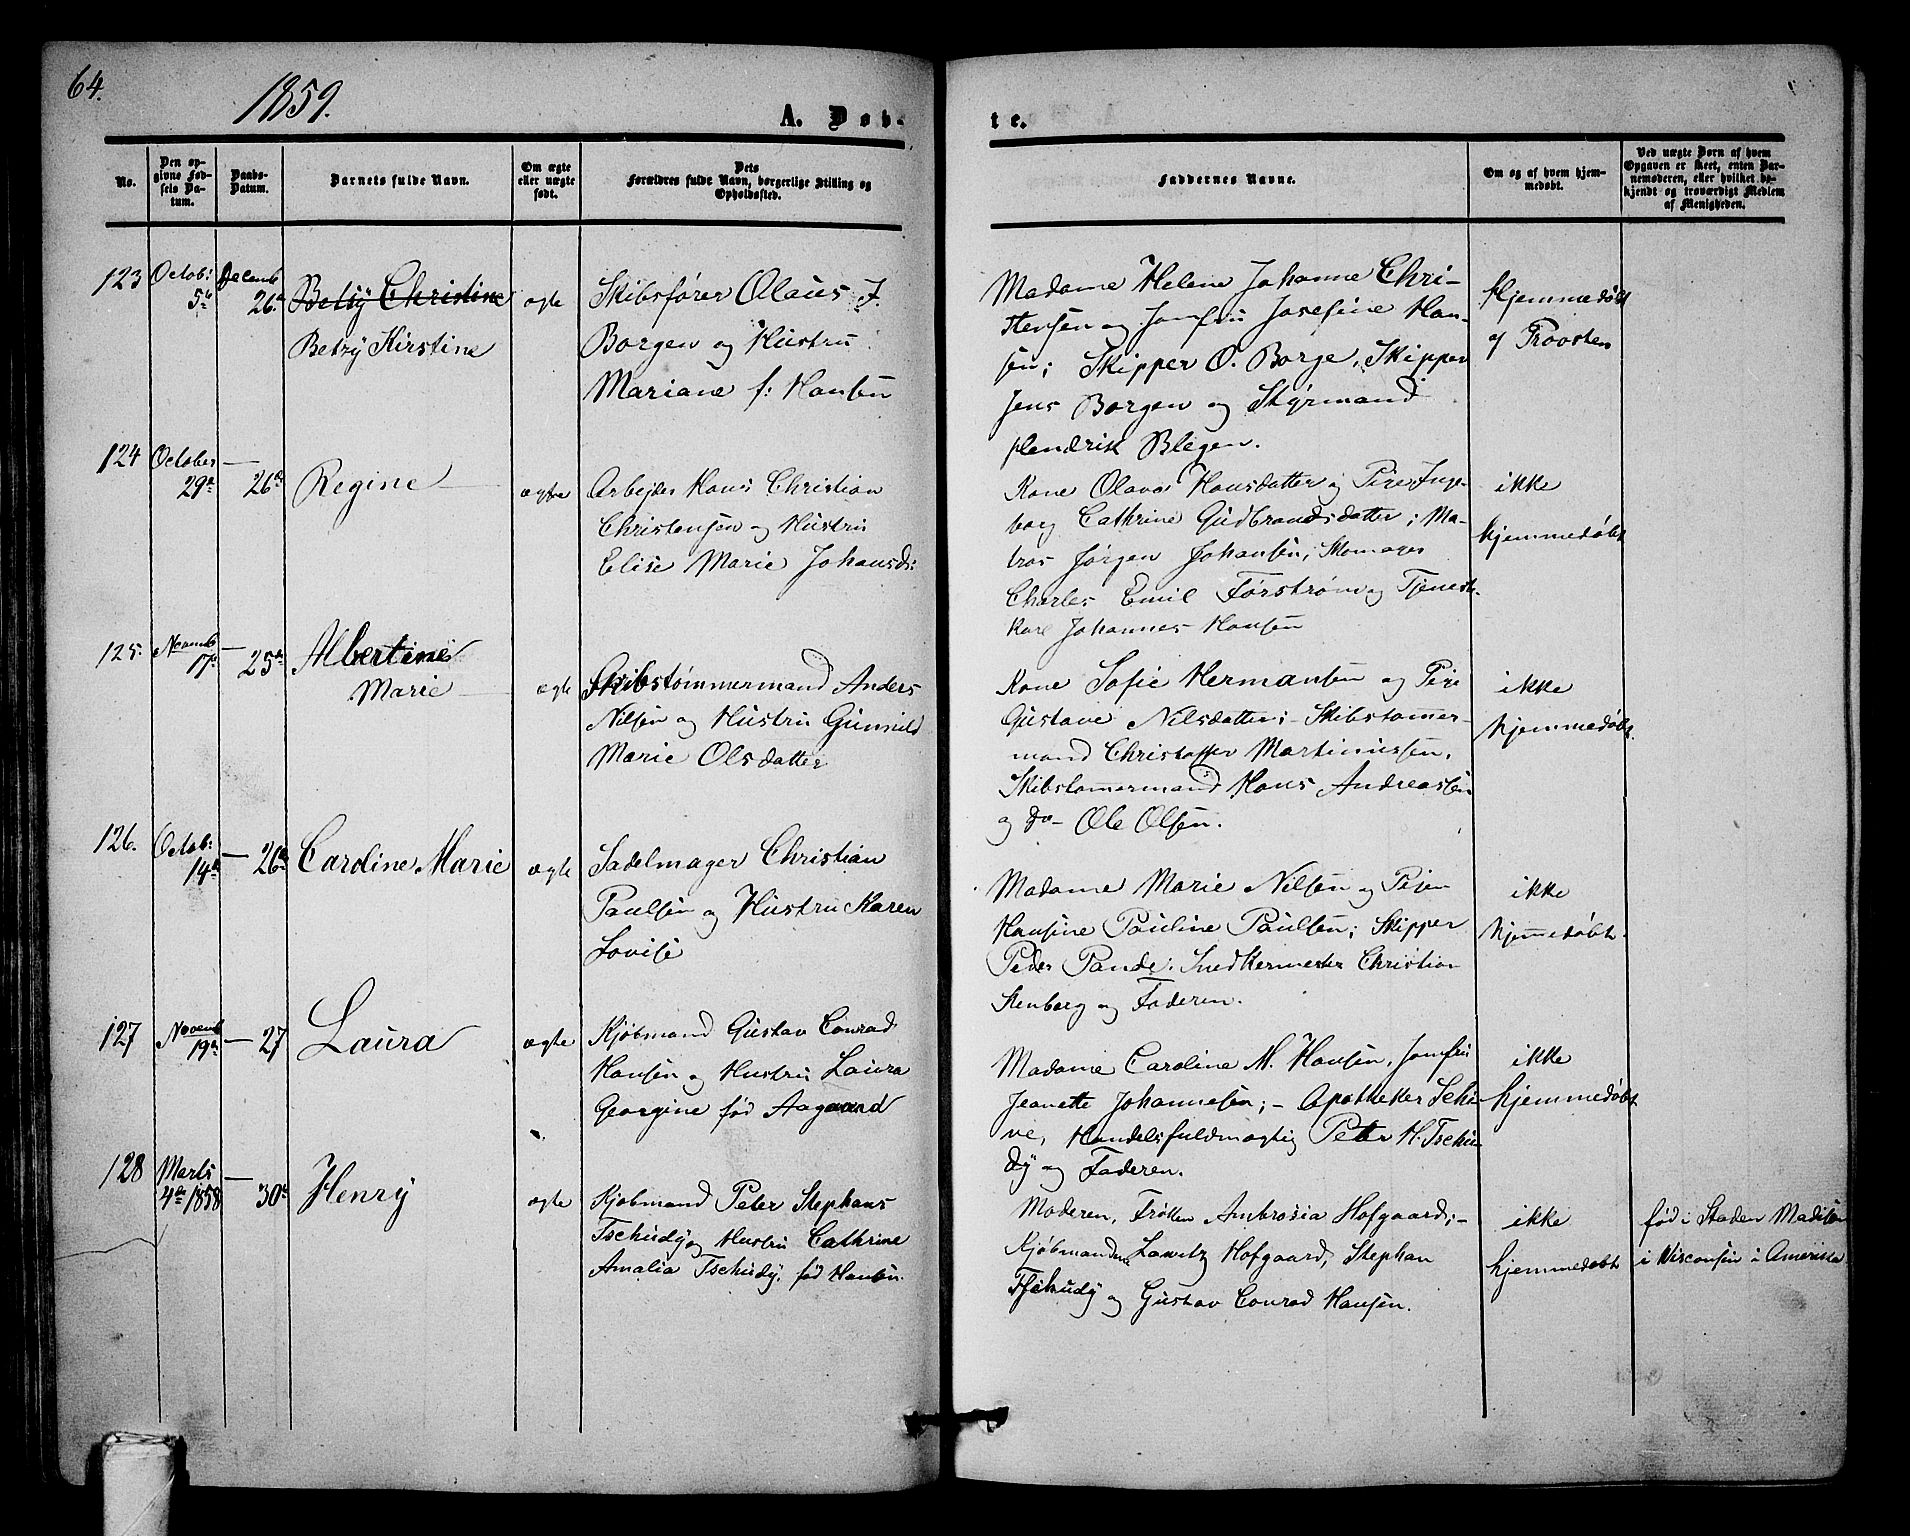 64.
1859.
A. Døb-
te.
No.
Den op-
givne Fød-
sels Da-
tum.
Daabs-
Datum.
Barnets fulde Navn.
Om ægte
eller uægte
født.
Dets
Forældres fulde Navn, borgerlige Stilling og
Opholdssted.
Faddernes Navne.
Om og af hvem hjem-
medøbt.
Ved uægte Børn af hvem
Opgaven er skeet, enten Bar-
nemoderen, eller hvilket be-
kjendt og troværdigt Medlem
af Menigheden.
123
Octob:
5te
Decemb
26.
Betsy Christine
Betzy Kirstine
ægte
Skibsfører Olaus J.
Borgen og Hustru
Mariane f: Hansen
Madame Helene Johanne Chri-
stensen og Jomfru Josefine Han-
sen; Skipper O. Borge, Skipper
Jens Borgen og Styrmand
Hendrik Blegen.
Hjemmedøbt
af Provsten
124
October
29de
— 26de
Regine
ægte
Arbejder Hans Christian
Christensen og Hustru
Elise Marie Johansd:
Kone Olava Hansdatter og Pige Inge-
borg Cathrine Gudbrandsdatter; Ma-
tros Jørgen Johansen; Skomager
Charles Emil Førstrøm og Tjeneste-
karl Johannes Hansen
ikke
hjemmedøbt
125.
Novemb
17de
— 25de
Albertine
Marie
ægte
Skibstømmermand Anders
Nilsen og Hustru Gunnild
Marie Olsdatter
Kone Sofie Hermansen og Pige
Gustave Nilsdatter; - Skibstømmer-
mand Christoffer Martinussen,
Skibstømmermand Hans Andreassen
og do - Ole Olsen.
ikke
hjemmedøbt.
126.
Octob:
14de
— 26de
Caroline Marie
ægte
Sadelmager Christian
Paulsen og Hustru Karen
Lovise
Madame Marie Nilsen og Pigen
Hansine Pauline Paulsen; Skipper
Peder Pande; Snedkermester Christian
Stenberg og Faderen.
ikke
hjemmedøbt.
127
Novemb
19de
— 27
Laura
ægte
Kjøbmand Gustav Conrad
Hansen og Hustru Laura
Georgine fød Aagaard
Madame Caroline M. Hansen, Jomfru
Jeanette Johannesen; - Apotheker Schi-
ve, Handelsfuldmægtig Peter H. Tschu-
dy og Faderen.
ikke
hjemmedøbt
128
Marts
4de 1858
— 30te
Henry
ægte
Kjøbmand Peter Stephans
Tschudy og Hustru Cathrine
Amalia Tschudy, fød Hansen.
Moderen, Frøken Ambrosia Hofgaard; -
Kjøbmændene Lawitz Hofgaard, Stephan
Tschudy og Gustav Conrad Hansen.
ikke
hjemmedøbt
fød i Staden Madison
i Wisconsin i Amerika